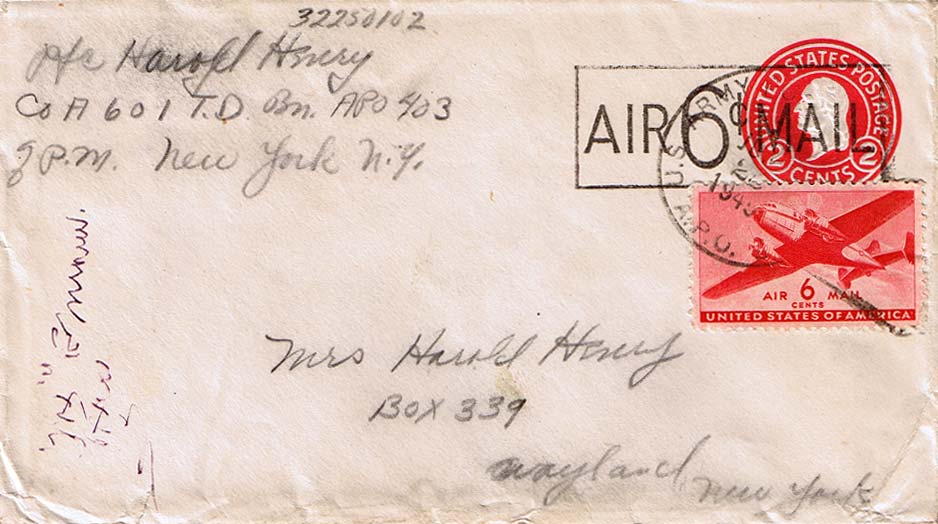 32250102
Pfc Harold Henry
Co A 601 T.D. Bn. APO 403
P.M. New York N.Y.
UNITED STATES POSTAGE
2 CENTS 2
AIR 6¢ MAIL
U.S. ARMY
1945
A.P.O.
AIR 6 MAIL
CENTS
UNITED STATES OF AMERICA
Mrs Harold Henry
Box 339
Wayland
New York